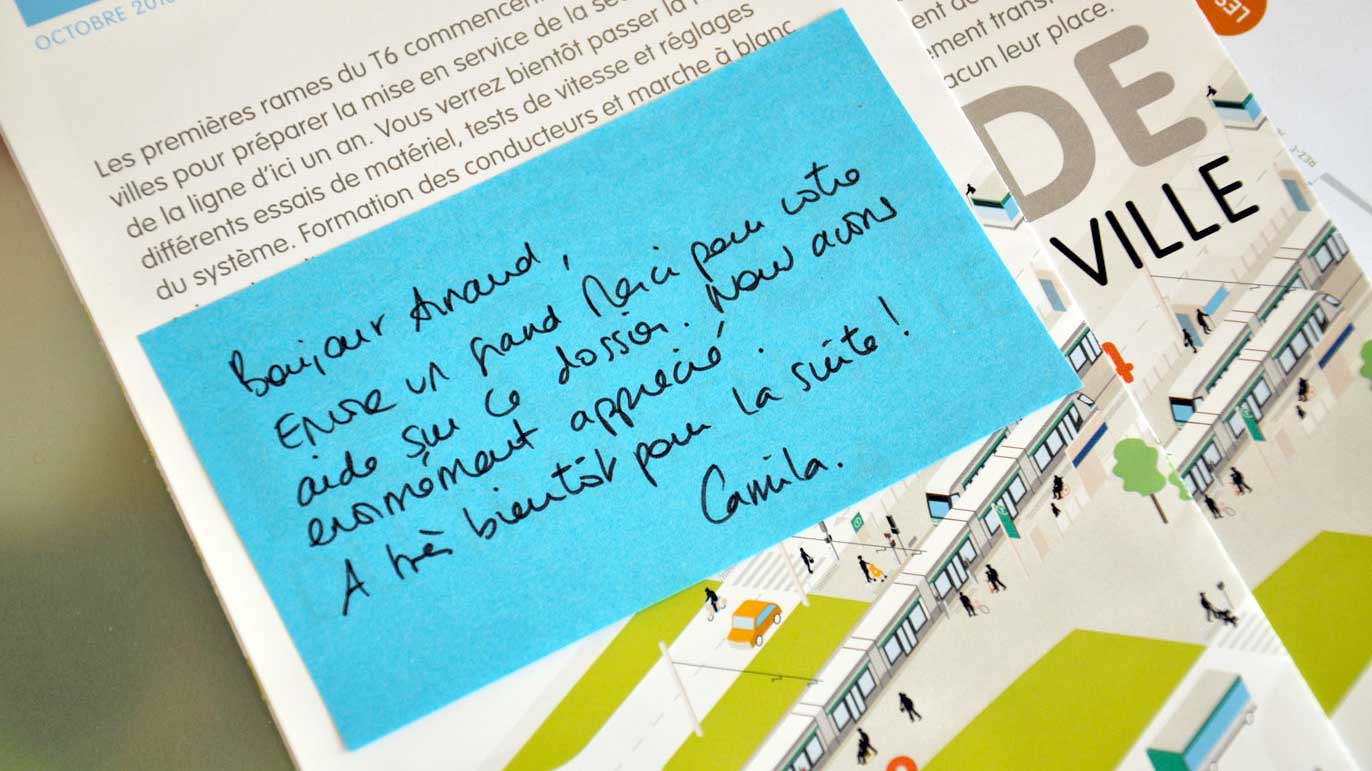 OCTOBRE 201
Les premières rames du T6 commencen
villes pour préparer la mise en service de la se
de la ligne d'ici un an. Vous verrez bientôt passer la
différents essais de matériel, tests de vitesse et réglages
du système. Formation des conducteurs et marche à blanc
ent de
ement trans
acun leur place.
LES
DE
VILLE
REZ-
Bonjour Arnaud,
Encore un grand Merci pour votre
aide sur ce dossier. Nous avons
enormément apprécié.
A très bientôt pour la suite !
Camila.
4